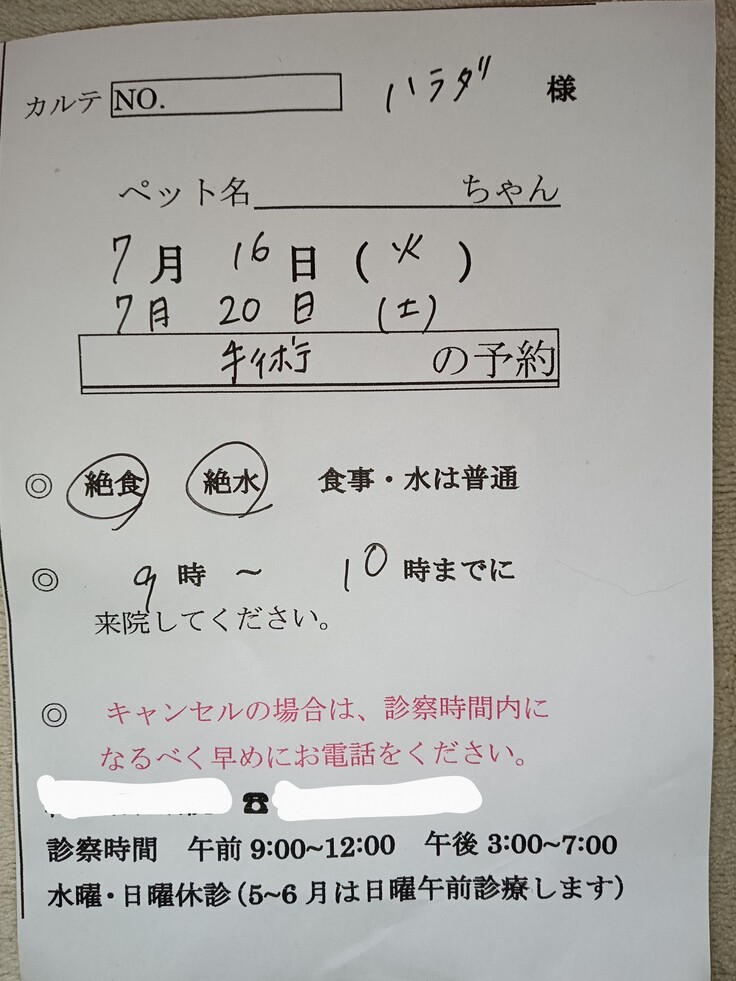 カルテ NO. ハラダ 様
ペット名 ちゃん
7月 16日 (火)
7月 20日 (土)
の予約
◎ 絶食 絶水 食事・水は普通
◎ 9時 ~ 10時までに
来院してください。
◎ キャンセルの場合は、診察時間内に
なるべく早めにお電話をください。
☎
診察時間 午前 9:00~12:00 午後 3:00~7:00
水曜・日曜休診 (5~6 月は日曜午前診療します)